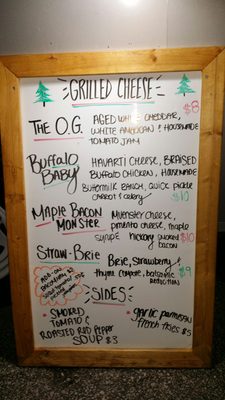 GRILLED CHEESE
THE O.G. AGED WHITE CHEDDAR, $8
WHITE AMERICAN & HOUSEMADE
TOMATO JAM
Buffalo Baby HAVARTI CHEESE, BRAISED
Buffalo CHICKEN, HOUSEMADE
Buttermilk RANCH, QUICK PICKLE
CARROT & Celery $10
Maple Bacon Monster Muenster cheese,
pimento cheese, maple
hickory smoked $10
Straw-Brie Brie, Strawberry &
thyme compote, balsamic $9
REDUCTION
ADD-ON
SIDES
* SMOKED
TOMATO &
ROASTED RED PEPPER
SOUP $3
* garlic parmesan
french fries $5